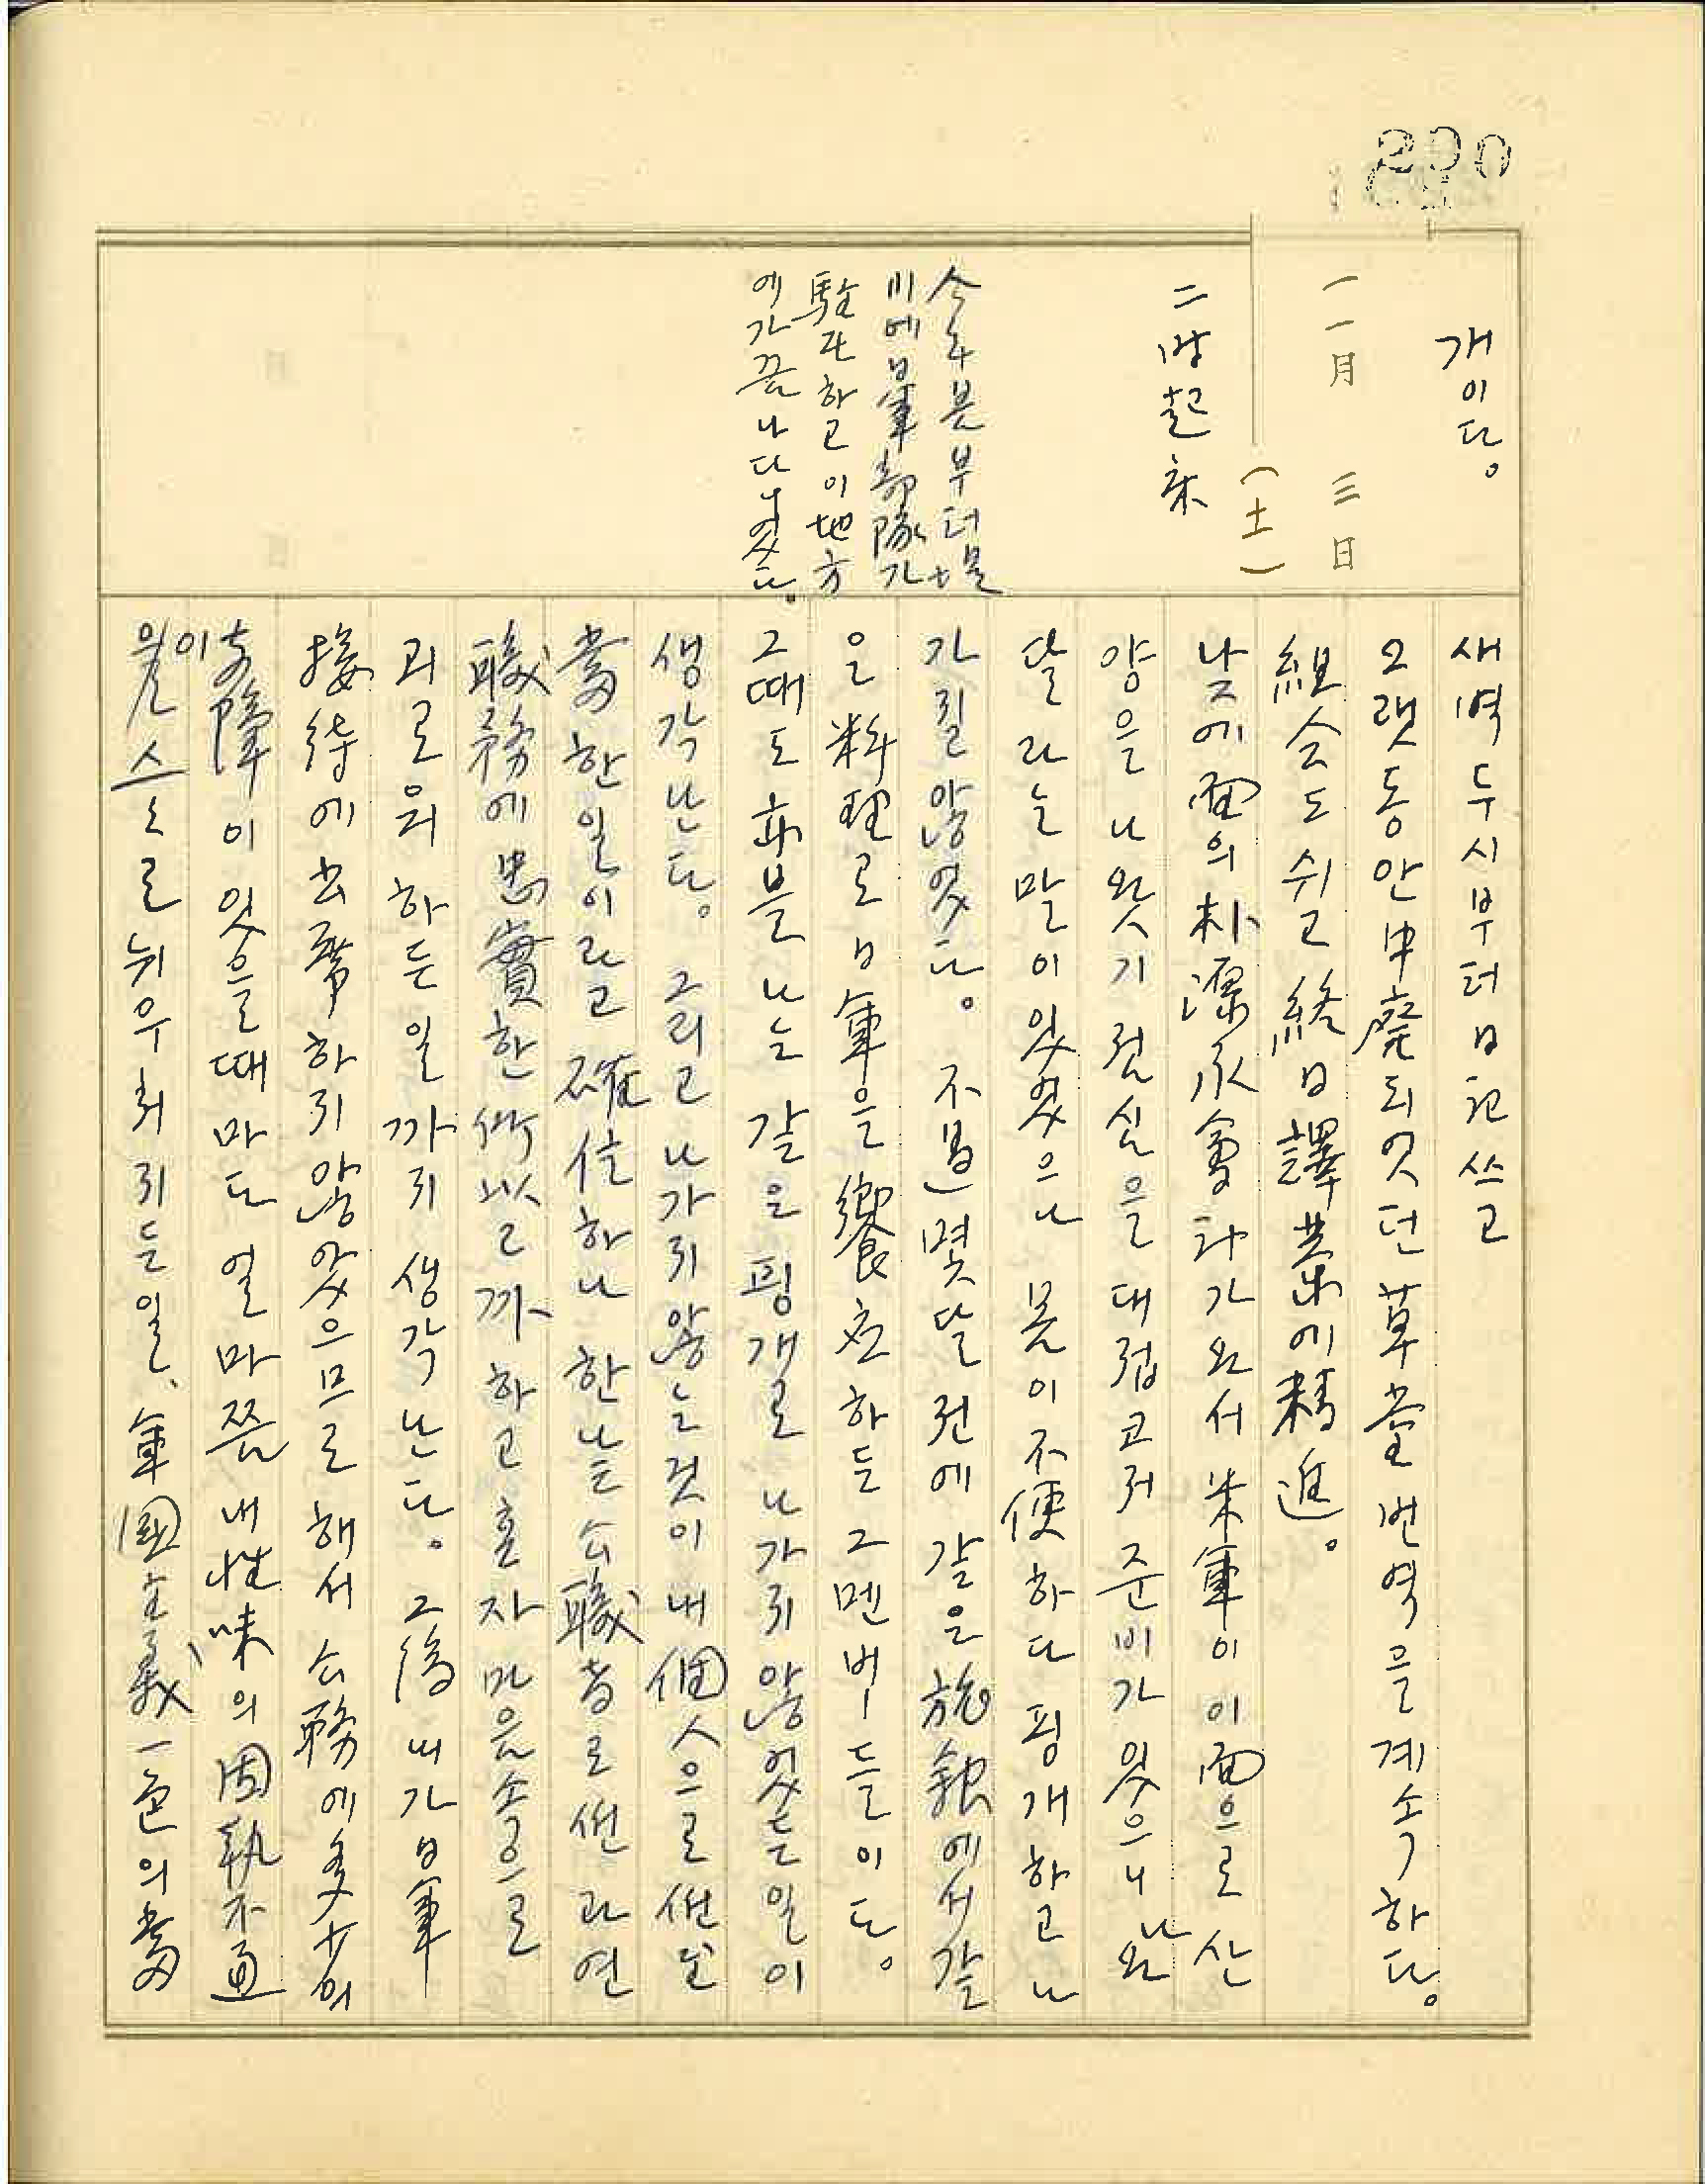 220
개이다。
一一月 三日
(土)
二時起床
今年 봄부터 물
川에 日軍部隊가
駐屯하고 이 地方
에 가끔 나다니엿다。
새벽 두시부터 日記 쓰고
오랫동안 中廢되엿던 草堂 번역을 계속하다。
組合도 쉬고 終日 譯業에 精進。
낮에 面의 朴漂永會타가 와서 米軍이 이 面으로 산
양을 나왓기 점심을 대접코저 준비가 잇으니 나와
달라는 말이 잇엇으나 몸이 不便하다 핑개하고 나
가질 않엇다。 不過 몇달 전에 갈은 旅館에서 갈
은 料理로 日軍을 饗応하든 그 멘버–들이다。
그때도 하불 나는 갈은 핑개로 나가지 않엇든 일이
생각난다。 그리고 나가지 않는 것이 내 個人으로썬 모
當한 일이라고 確信하나 한낱 公職者로썬 과연
職務에 忠實한 所以르까 하고 혼자 마음속으로
괴로워하든 일까지 생각난다。 그後 내가 日軍
接待에 出席하지 않앗으므로 해서 公務에 多少의
支障이 잇을때마다 얼마쯤 내 性味의 固執不通
이
을 스스로 뉘우치지든 일、 軍國主義 一色의 當